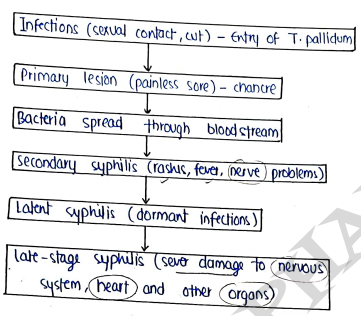 Infections (sexual contact, cut) – Entry of T. pallidum
Primary lesion (painless sore) – chancre
Bacteria spread through bloodstream
Secondary syphilis (rashus, fever, nerve problems)
Latent syphilis (dormant infections)
late-stage syphilis (sever damage to nervous
system, heart and other organs)
PHA